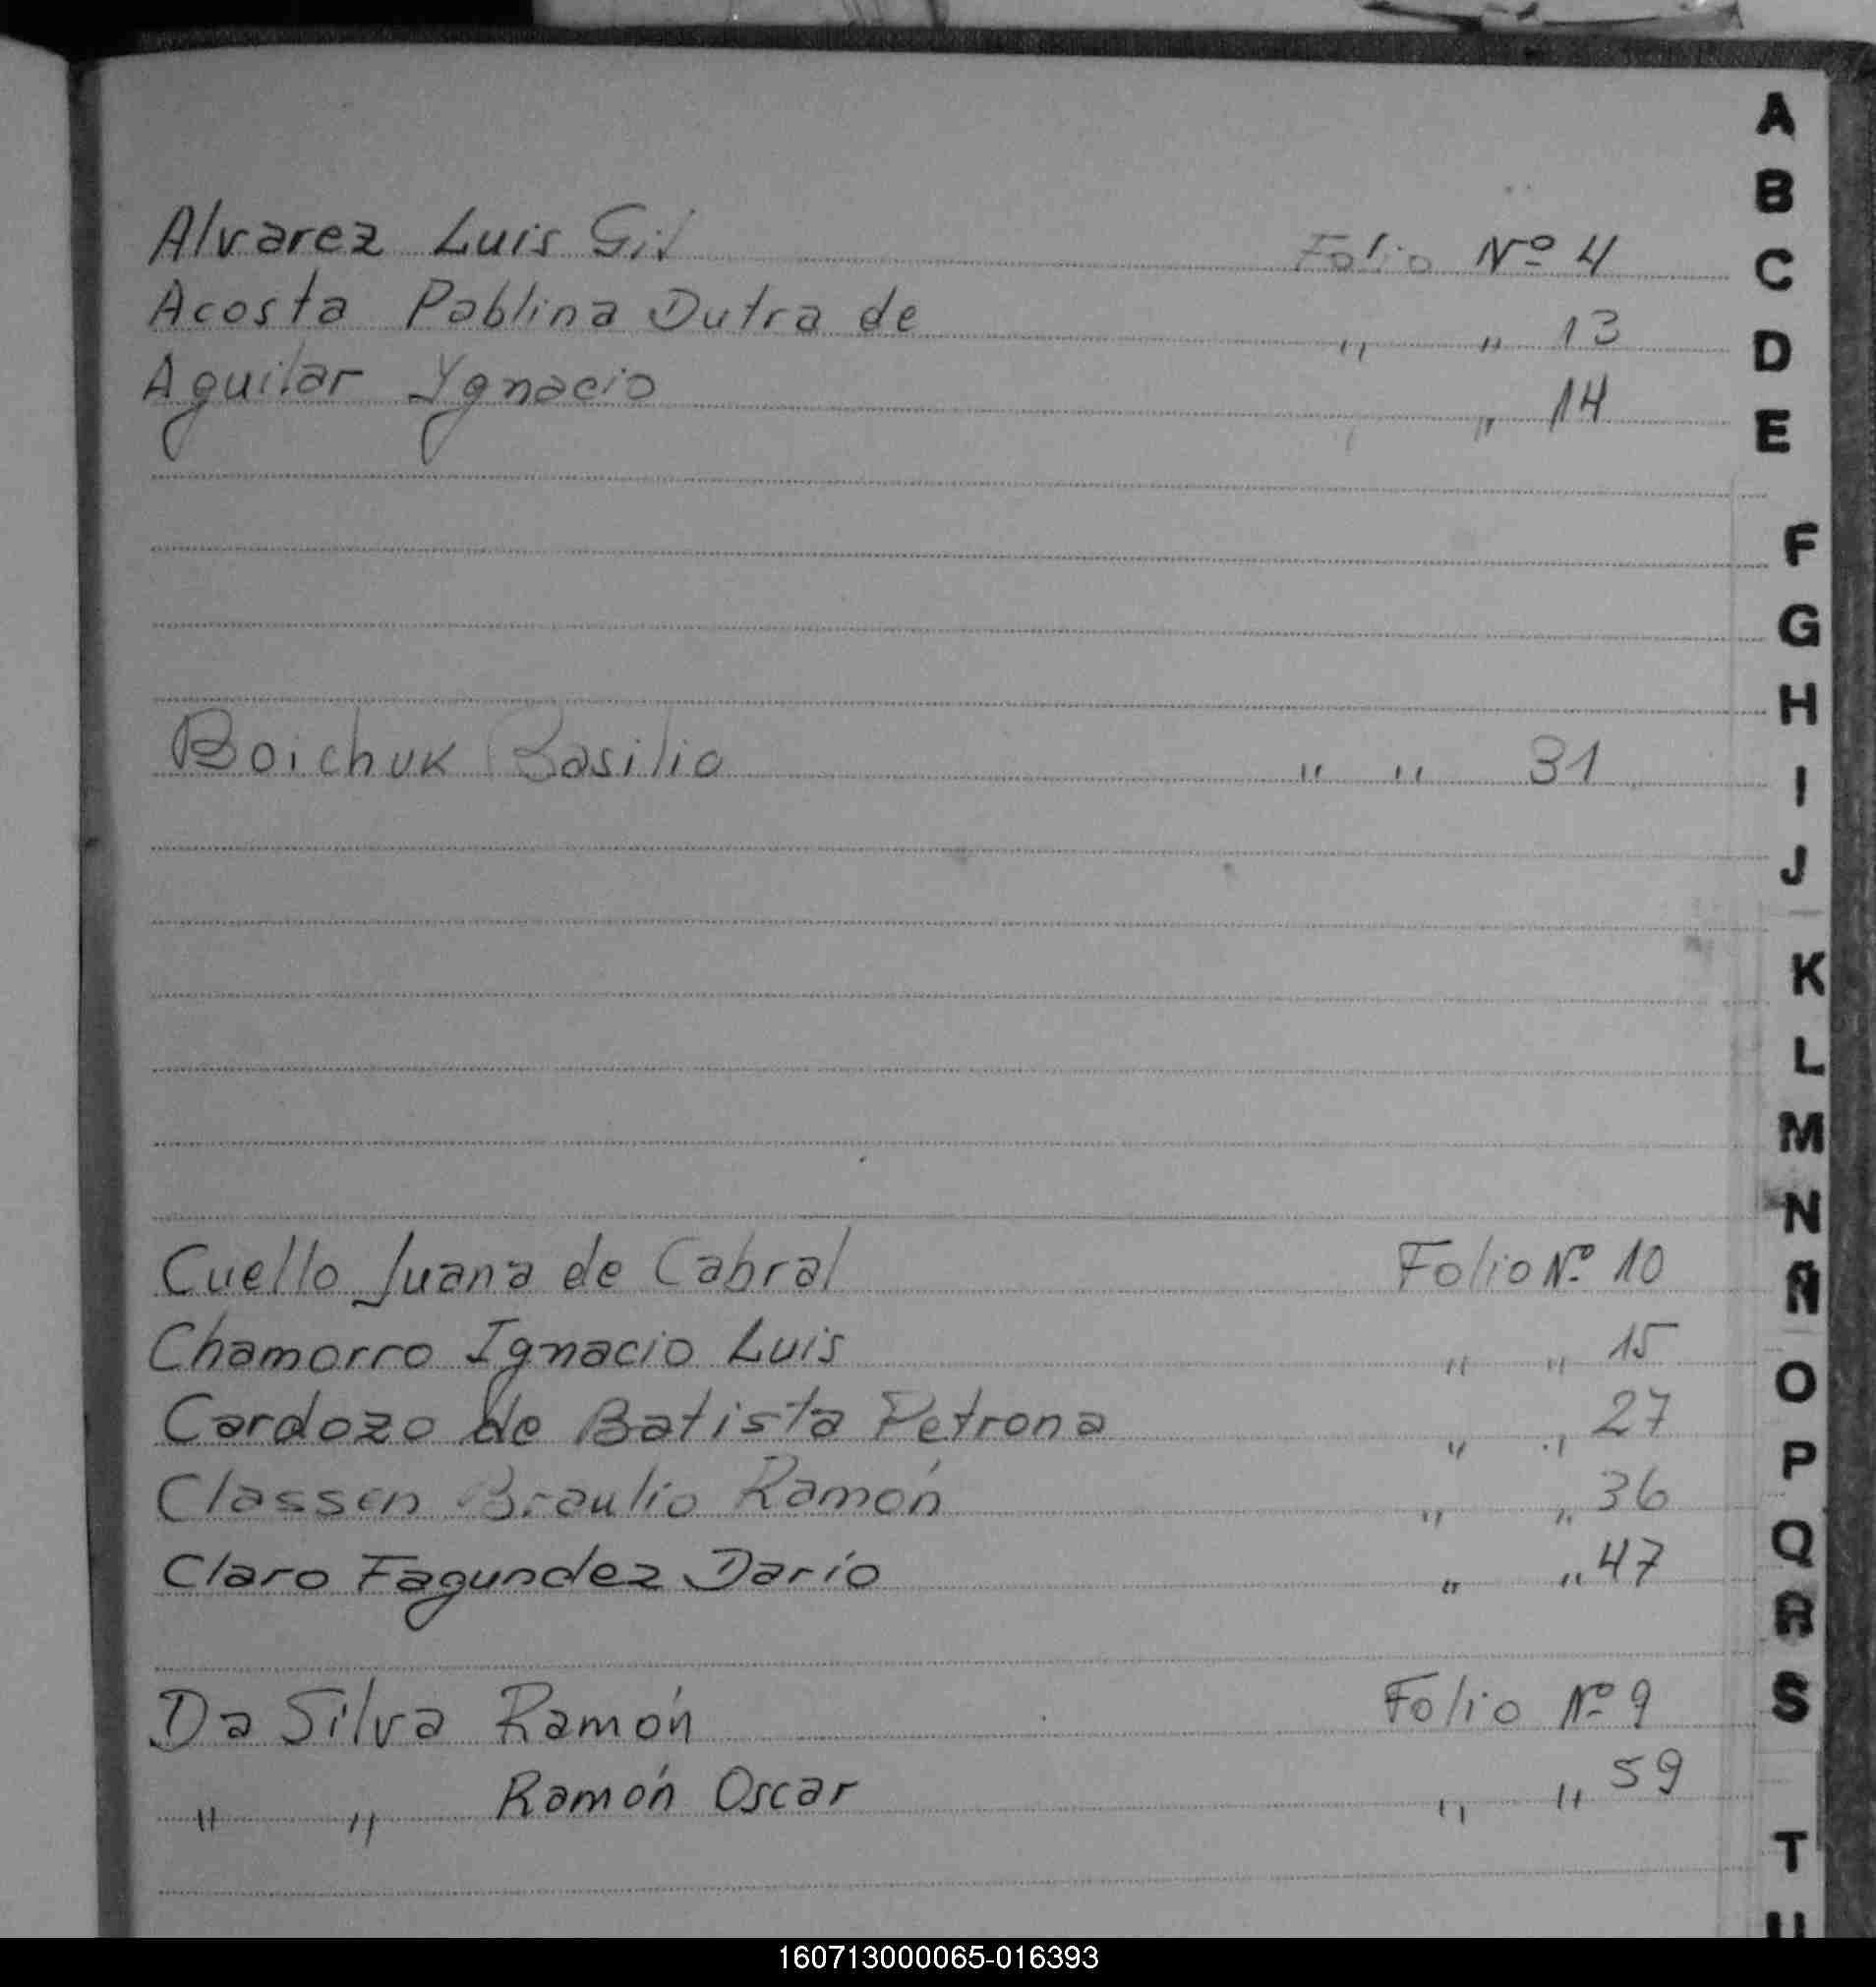 Alvarez Luis Gil Folio Nº 4
Acosta Pablina Dutra de " " 13
Aguilar Ygnacio " " 14
Boichuk Basilio " " 31
Cuello Juana de Cabral Folio Nº 10
Chamorro Ignacio Luis " " 15
Cardozo de Batista Petrona " " 27
Classen Braulio Ramón " " 36
Claro Fagundez Darío " " 47
Da Silva Ramón Folio Nº 9
" " Ramón Oscar " " 59
A
B
C
D
E
F
G
H
I
J
K
L
M
N
Ñ
O
P
Q
R
S
T
U
160713000065-016393